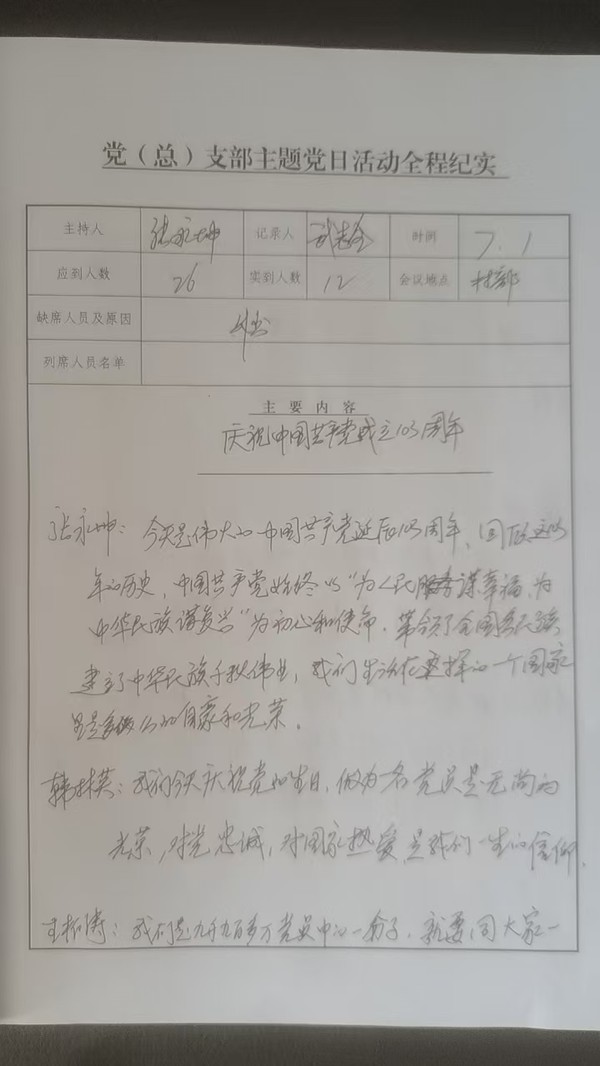 党（总）支部主题党日活动全程纪实
主持人 张永坤 记录人 时间 7.1
应到人数 26 实到人数 12 会议地点 村部
缺席人员及原因 外出
列席人员名单
主要内容
庆祝中国共产党成立103周年
张永坤：今天是伟大的中国共产党诞辰103周年，回顾这103
年的历史，中国共产党始终以“为人民服务谋幸福，为
中华民族谋复兴”为初心和使命，带领了全国各民族
建立了中华民族千秋伟业，我们生活在这样的一个国家
是是多么的自豪和光荣。
韩林英：我们今天庆祝党的生日，做为一名党员是无尚的
光荣，对党忠诚，对国家热爱是我们一生的信仰。
王树涛：我们是九千九百多万党员中的一份子，就要同大家一